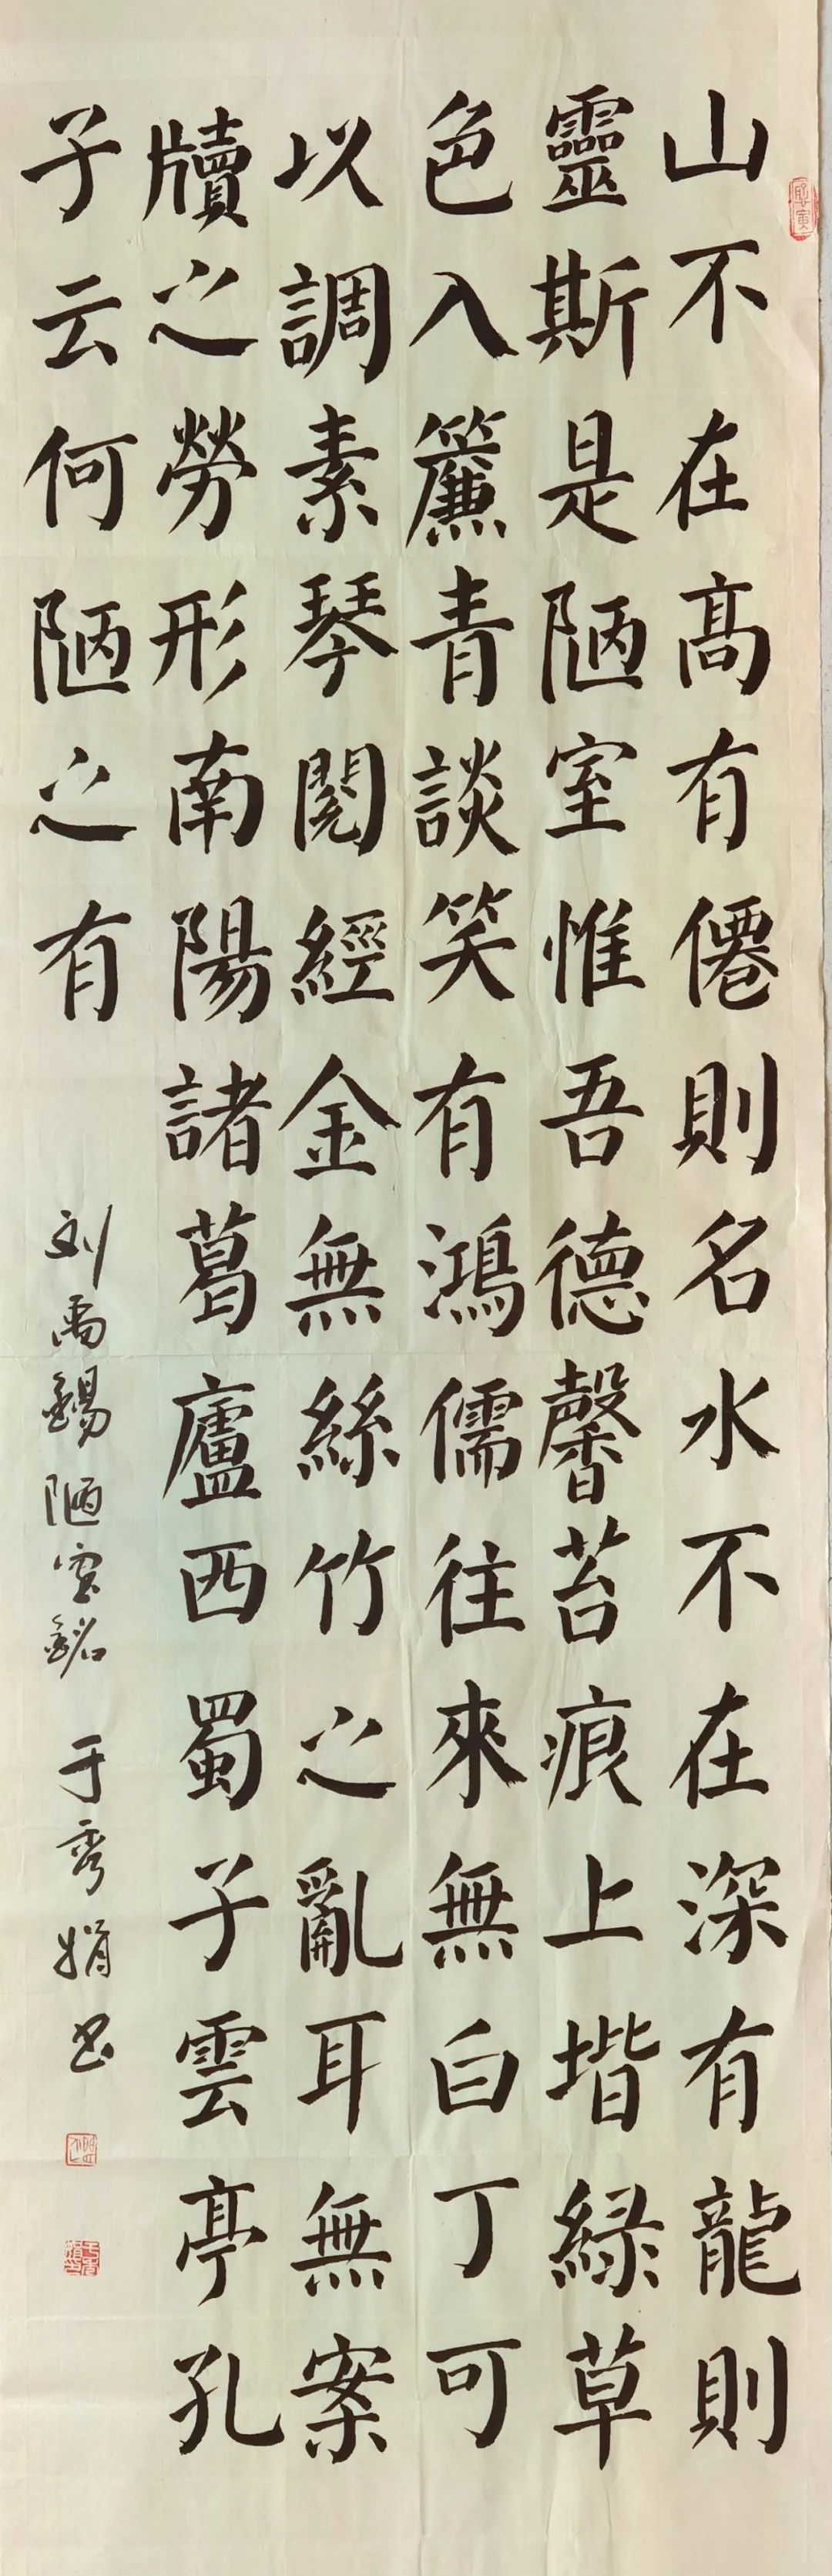 山不在高有僊則名水不在深有龍則
靈斯是陋室惟吾德馨苔痕上堦緑草
色入簾青談笑有鴻儒往來無白丁可
以調素琴閱經金無絲竹之亂耳無案
牘之勞形南陽諸葛廬西蜀子雲亭孔
子云何陋之有
刘禹錫陋室銘 于秀娟书